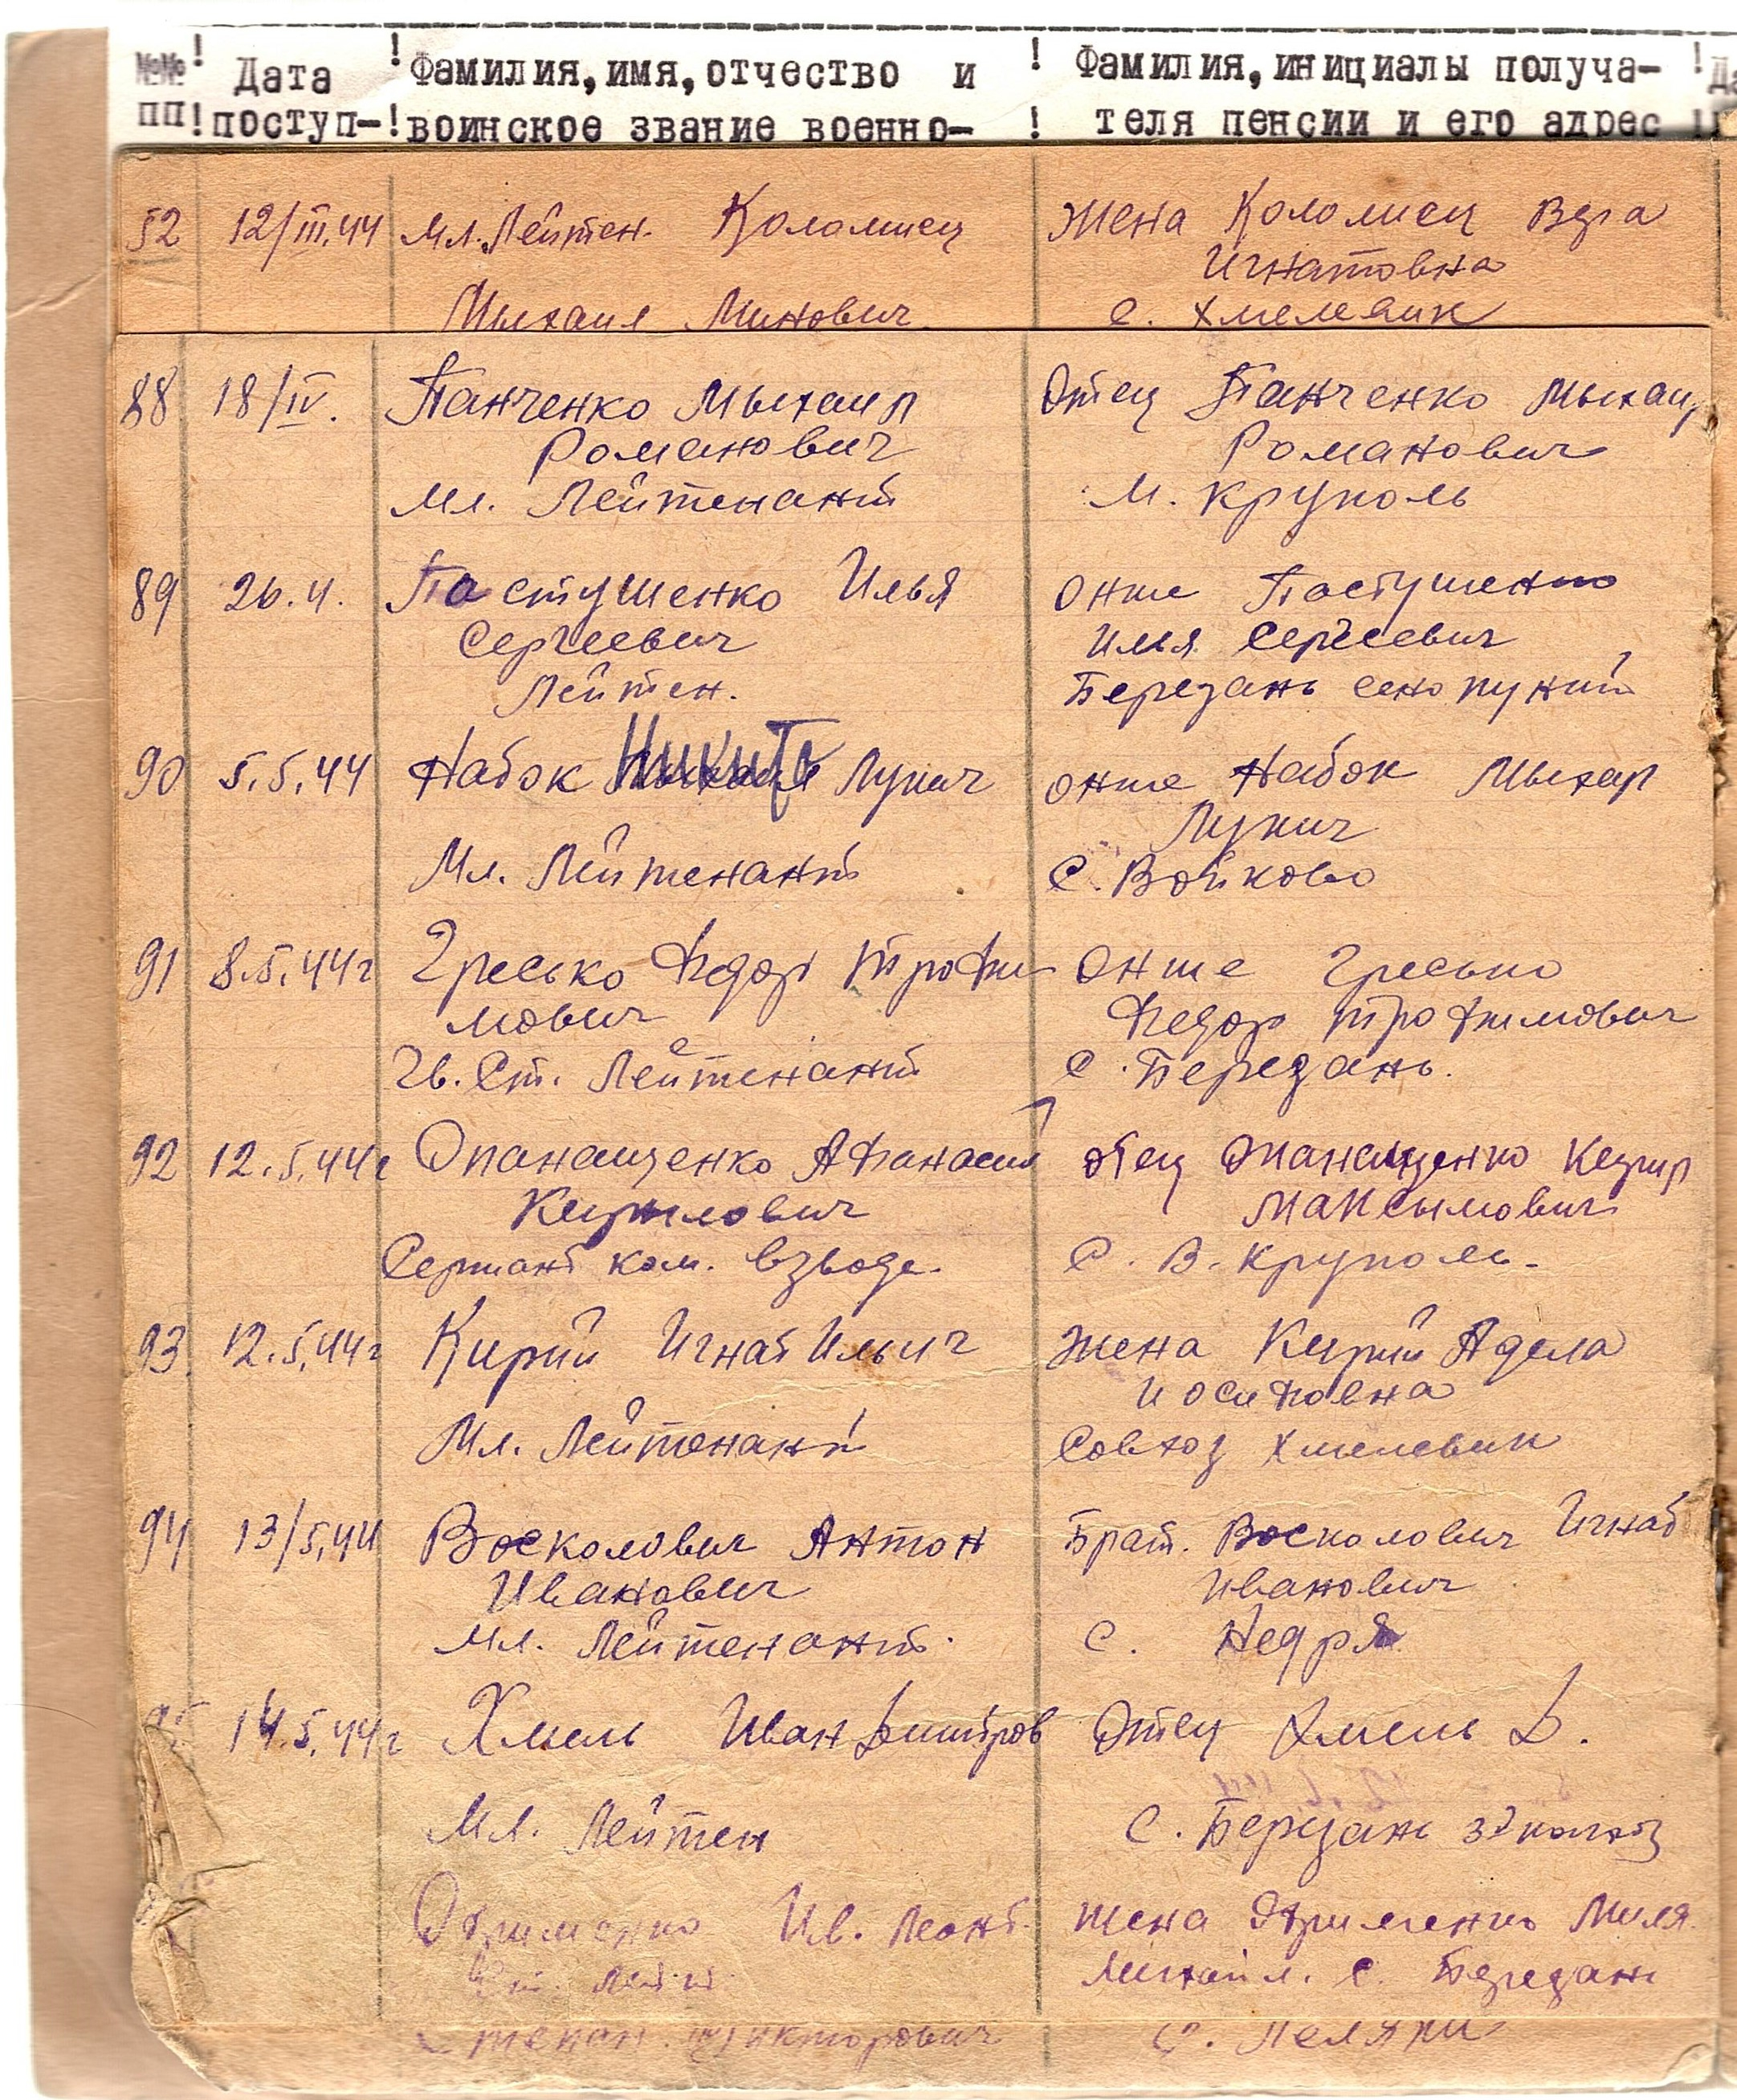 №№ ! Дата ! Фамилия, имя, отчество и ! Фамилия, инициалы получа- !
пп ! поступ- ! воинское звание военно- ! теля пенсии и его адрес !
52 12/III.44 Мл. Лейтен. Коломиец Жена Коломиец Вера
Игнатовна
Мыхаил Минович с. Хмелевик
88 18/IV. Панченко Мыхаил Отец Панченко Мыхаил
Романович Романович
Мл. Лейтенант М. Круполь
89 26.4. Пастушенко Илья Онже Пастушенко
Сергеевич Илья Сергеевич
Лейтен. Березань сено пункт
90 5.5.44 Набок Никита Лукич онже Набок Мыхаил
Лукич
Мл. Лейтенант С. Войково
91 8.5.44г Гресько Федор Трофи Онже Гресько
мович Федор Трофимович
Гв. Ст. Лейтенант С. Березань.
92 12.5.44г Опанащенко Афанасий отец Опанащенко Кирил
Кирилович Максымович
Сержант ком. взвода. С. В. Круполь.
93 12.5.44г Кирий Игнат Ильич Жена Кирий Адела
Иосифовна
Мл. Лейтенант Совхоз Хмелевик
94 13/5.44 Восколович Антон Брат. Восколович Игнат
Иванович Иванович
Мл. Лейтенант. С. Недря
95 14.5.44г Хмель Иван Дмитров Отец Хмель Д.
Мл. Лейтен С. Березань колхоз
Ив. Леонт. жена
Михайл. С. Березань
Викторович С. Пеляки